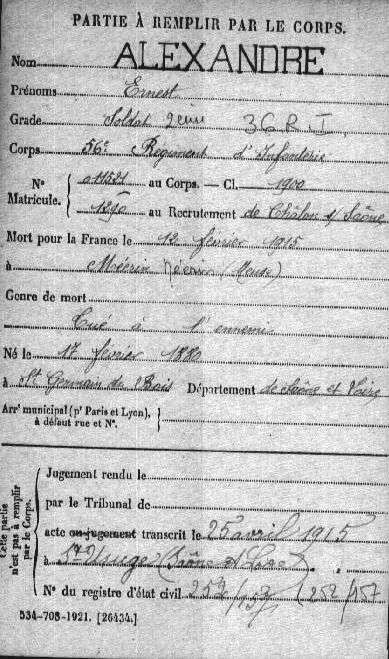 PARTIE À REMPLIR PAR LE CORPS.
Nom ALEXANDRE
Prénoms Ernest
Grade Soldat 2eme 36 R I
Corps 56e Régiment d'Infanterie
Nº Matricule. { 011521 au Corps. — Cl. 1900
1290 au Recrutement de Châlon s/ Saône
Mort pour la France le 12 février 1915
à Mécrin (Meuse)
Genre de mort
Tué à l'ennemi
Né le 17 février 1880
à St Germain du Bois Département de Saône et Loire
Arrt municipal (pr Paris et Lyon),
à défaut rue et Nº.
Cette partie n'est pas à remplir par le Corps.
Jugement rendu le
par le Tribunal de
acte ou jugement transcrit le 25 avril 1915
à St Usuge (Saône et Loire)
Nº du registre d'état civil 252/157 (252/157
534-708-1921. [26434.]